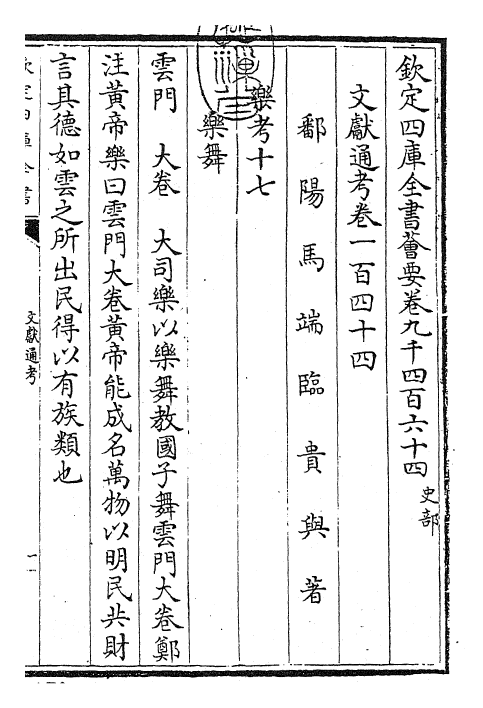 欽定四庫全書薈要卷九千四百六十四 史部
文獻通考卷一百四十四
鄱陽馬端臨貴與著
樂考十七
樂舞
雲門 大卷 大司樂以樂舞教國子舞雲門大卷鄭
注黄帝樂曰雲門大卷黄帝能成名萬物以明民共財
言其德如雲之所出民得以有族類也
文獻通考
一